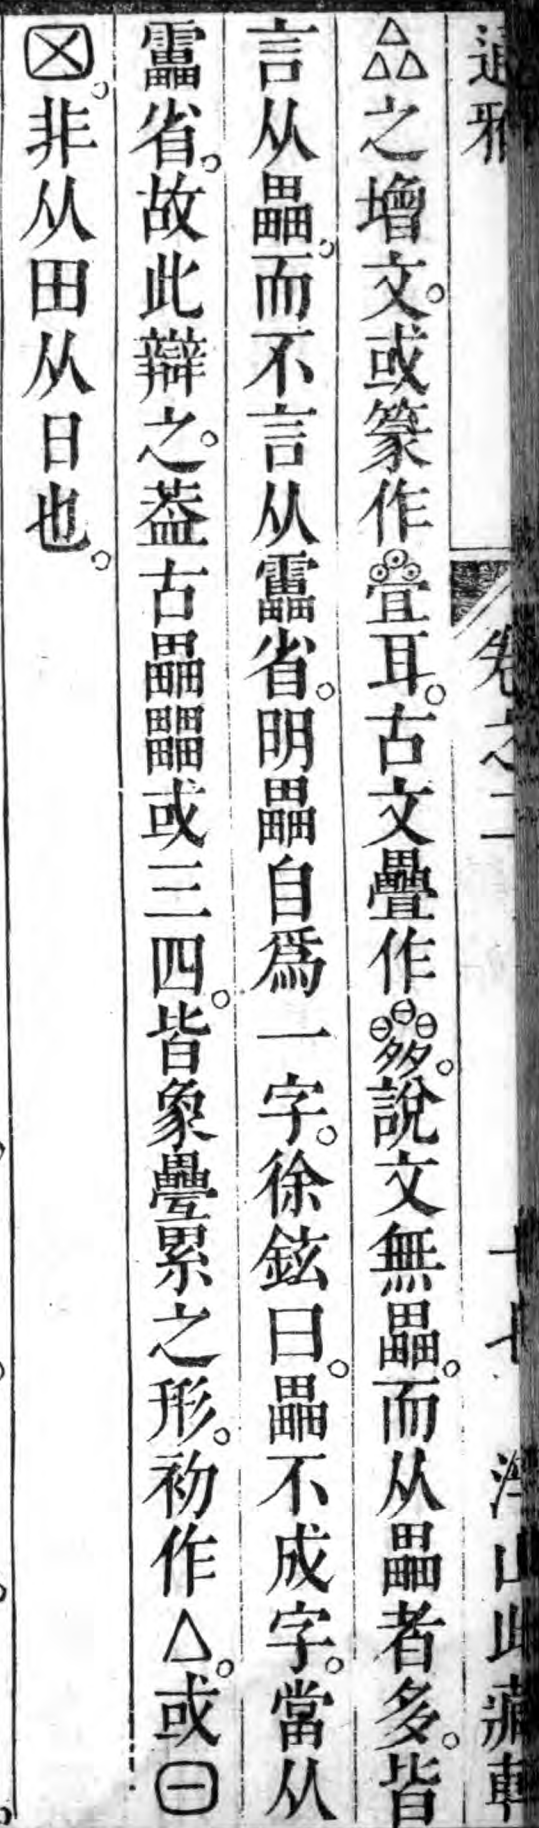 通雅 卷之二 十七 浮山此藏軒
之增文。或篆作耳。古文疊作。說文無畾。而从畾者多。皆
言从畾。而不言从靁省。明畾自爲一字。徐鉉曰。畾不成字。當从
靁省。故此辯之。葢古畾𤴐或三四。皆象疊累之形。初作△。或日
囗。非从田从日也。